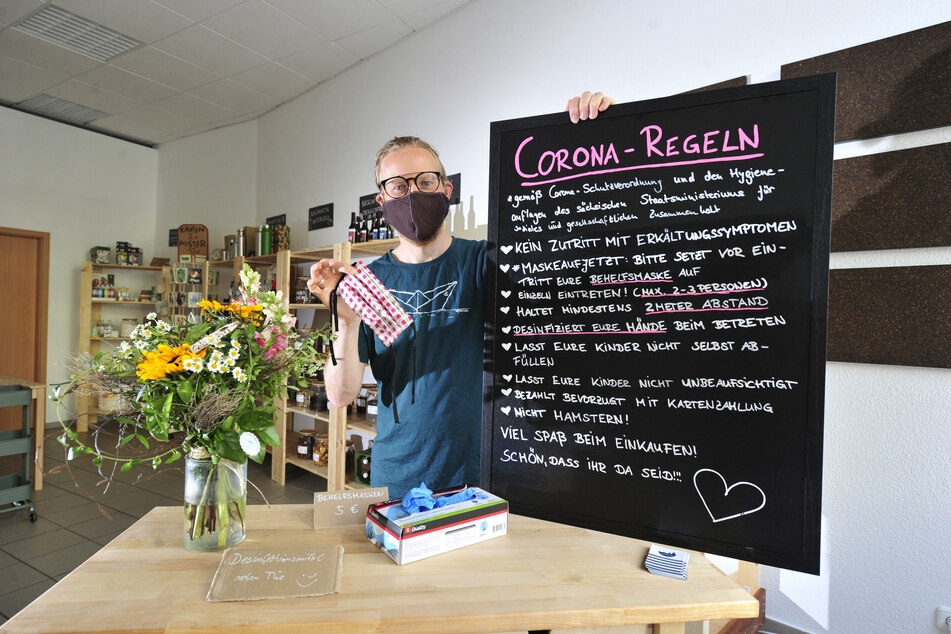 CORONA-REGELN
gemäß Corona-Schutzverordnung und den Hygiene-
auflagen des sächsischen Staatsministeriums für
soziales und gesellschaftlichen Zusammenhalt
KEIN ZUTRITT MIT ERKÄLTUNGSSYMPTOMEN
#MASKEAUFJETZT: BITTE SETZT VOR EIN-
TRITT EURE BEHELFSMASKE AUF
EINZELN EINTRETEN! (MAX. 2-3 PERSONEN)
HALTET MINDESTENS 2 METER ABSTAND
DESINFIZIERT EURE HÄNDE BEIM BETRETEN
LASST EURE KINDER NICHT SELBST AB-
FÜLLEN
LASST EURE KINDER NICHT UNBEAUFSICHTIGT
BEZAHLT BEVORZUGT MIT KARTENZAHLUNG
NICHT HAMSTERN!
VIEL SPAß BEIM EINKAUFEN!
SCHÖN, DASS IHR DA SEID!!!
KARTEN
POSTER
BEHELFSMASKEN
5 €
Quality
Desinfektionsmittel
neben Tür